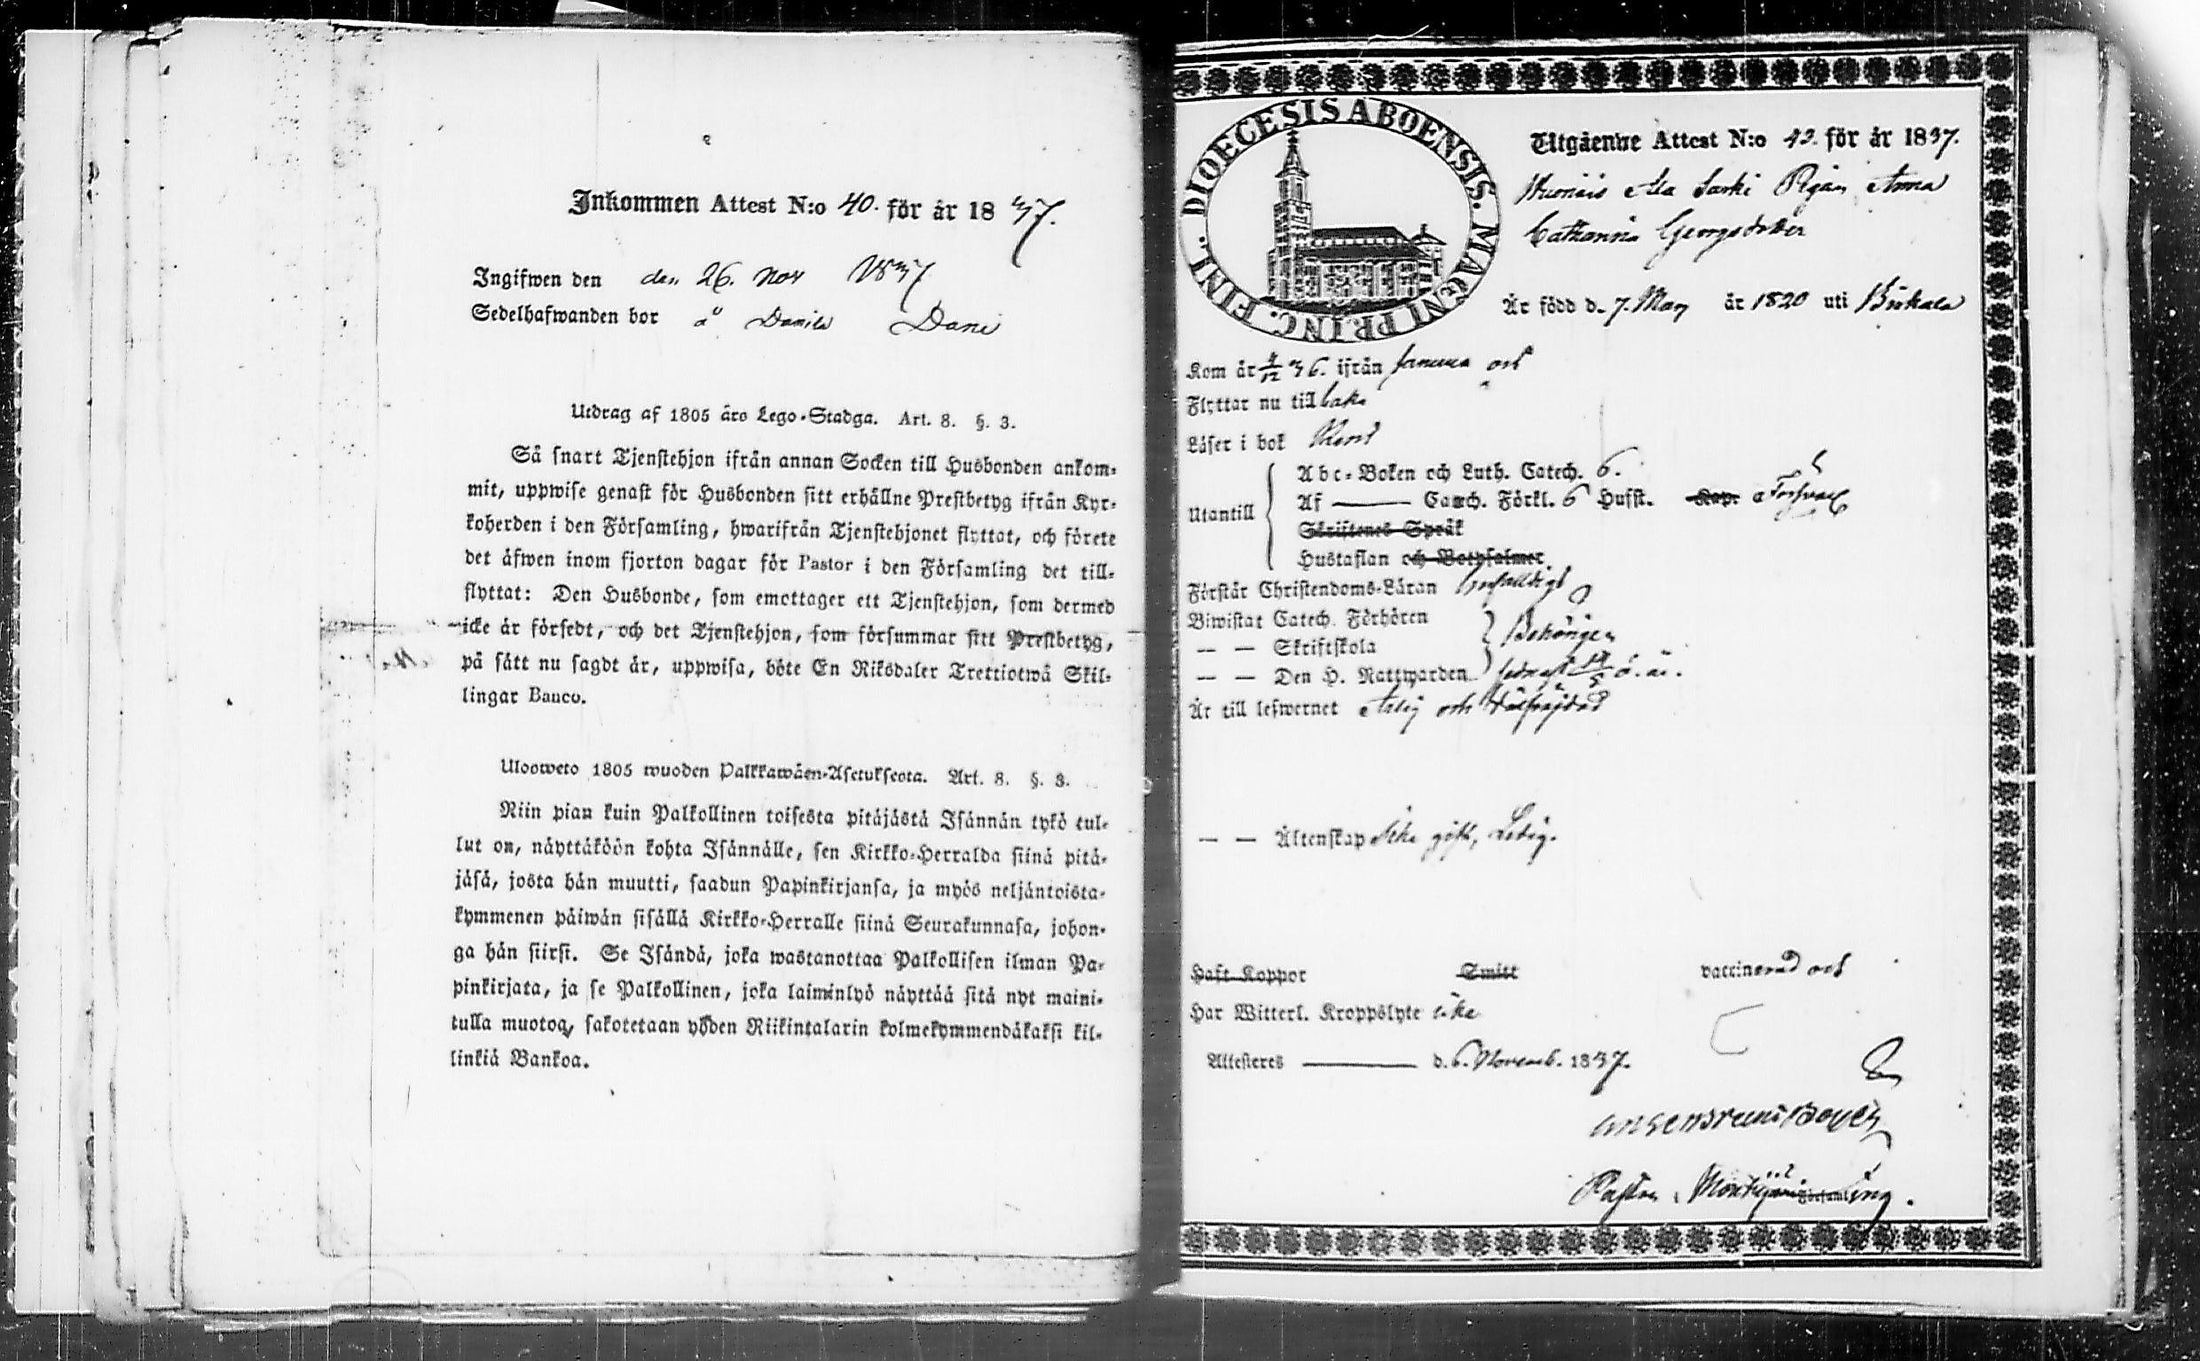 Inkommen Attest N:o 40. för år 1837.
Ingifwen den den 26. Nov 1837
Sedelhafwanden bor å Danila Dani
Utdrag af 1805 års Lego-Stadga. Art. 8. §. 3.
Så snart Tjenstehjon ifrån annan Socken till Husbonden ankom-
mit, uppwise genast för Husbonden sitt erhållne Prestbetyg ifrån Kyr-
koherden i den Församling, hwarifrån Tjenstehjonet flyttat, och förete
det åfwen inom fjorton dagar för Pastor i den Församling det till-
flyttat: Den Husbonde, som emottager ett Tjenstehjon, som dermed
icke är försedt, och det Tjenstehjon, som försummar sitt Prestbetyg,
på sätt nu sagdt är, uppwisa, böte En Riksdaler Trettiotwå Skil-
lingar Banco.
Ulosweto 1805 wuoden Palkkawäen-Asetuksesta. Art. 8. §. 3.
Niin pian kuin Palkollinen toisesta pitäjästä Isännän tykö tul-
lut on, näyttäköön kohta Isännälle, sen Kirkko-Herralda siinä pitä-
jäsä, josta hän muutti, saadun Papinkirjansa, ja myös neljäntoista-
kymmenen päiwän sisällä Kirkko-Herralle siinä Seurakunnasa, johon-
ga hän siirsi. Se Isändä, joka wastanottaa Palkollisen ilman Pa-
pinkirjata, ja se Palkollinen, joka laiminlyö näyttää sitä nyt maini-
tulla muotoa, sakotetaan yhden Riikintalarin kolmekymmendäkaksi kil-
linkiä Bankoa.
DIOECESIS ABOENSIS. MAGNI PRINC. FINL.
Utgående Attest N:o 43. för år 1837.
Ala Sarki Pigan Anna
Catharina Georgsdotter
Är född d. 7. Maj år 1820 uti Birkala
Kom år 4/12 36. ifrån och
Flyttar nu tillbaka
Läser i bok
Utantill
Abc-Boken och Luth. Catech. 6.
Af Catech. Förkl. 6 Husst. Kap. a Försvar
Skriftenes Språk
Hustaflan och Botpsalmer
Förstår Christendoms-Läran Enfaldigt
Biwistat Catech. Förhören
— — Skriftskola Behörigen
— — Den H. Nattwarden sednast
Är till lefwernet Ärlig och Välfräjdad
— — Äktenskap Icke gift, Ledig.
Haft Koppor Smitt vaccinerad och
Har Witterl. Kroppslyte icke
Attesteres d. 6. Novemb. 1837.
Pastor i församling.